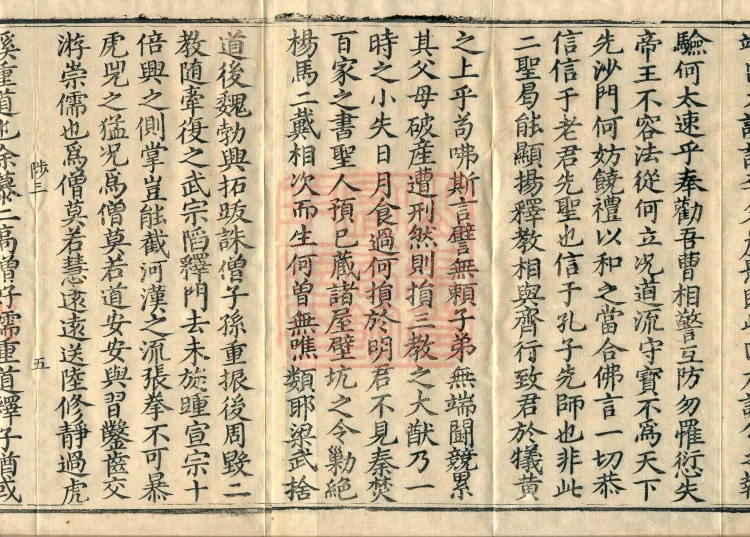 驗何太速乎奉勸吾曹相警互防勿罹愆失
帝王不容法從何立况道流守寶不爲天下
先沙門何妨饒禮以和之當合佛言一切恭
信信于老君先聖也信于孔子先師也非此
二聖曷能顯揚釋教相與齊行致君於犧黃
之上乎苟咈斯言譬無賴子弟無端鬪競累
其父母破産遭刑然則損三教之大猷乃一
時之小失日月食過何損於明君不見秦焚
百家之書聖人預已藏諸屋壁坑之令勦絕
楊馬二戴相次而生何曾無噍類耶梁武捨
道後魏勃興拓跋誅僧子孫重振後周毀二
教隨牽復之武宗陷釋門去未旋踵宣宗十
倍興之側掌豈能截河漢之流張拳不可暴
虎兕之猛况爲僧莫若道安安與習鑿齒交
游崇儒也爲僧莫若慧遠遠送陸修靜過虎
陟三 五
溪重道也余慕二高僧好儒重道釋子猶或